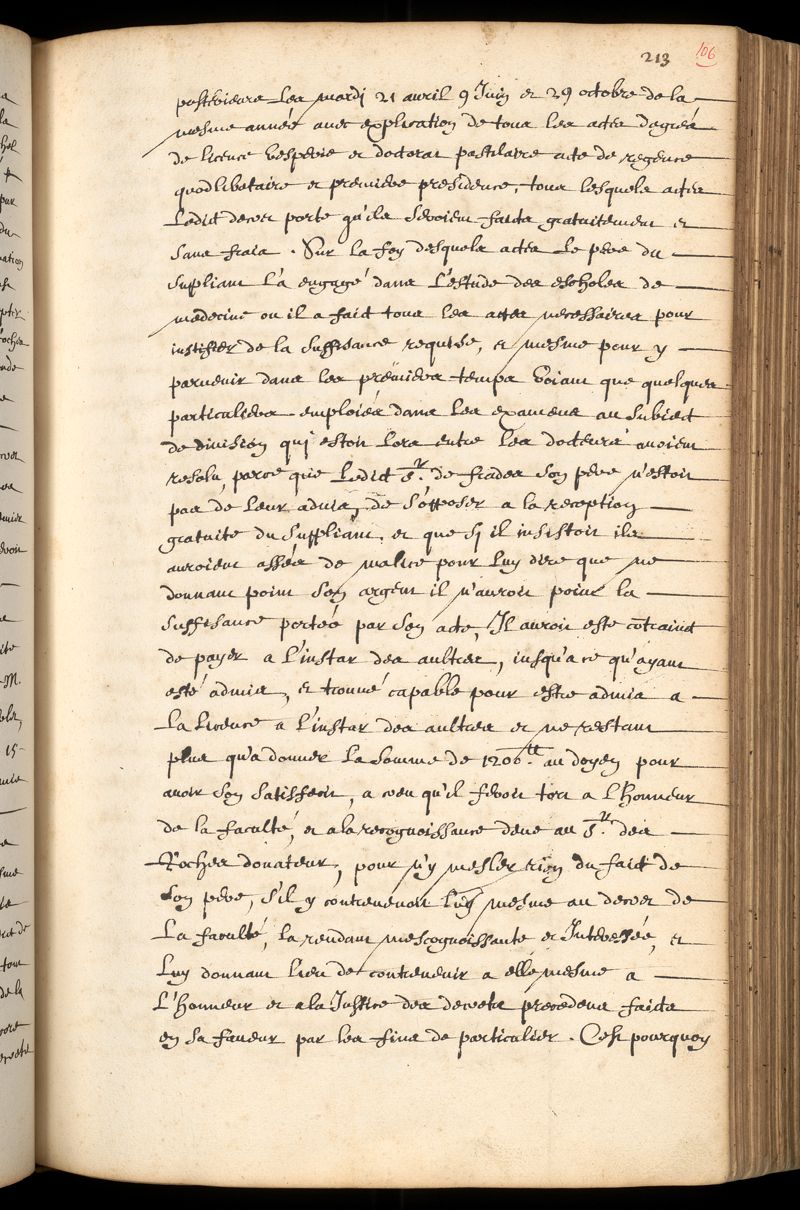 213 106
posterieure les mardi 21 avril 9 Juin et 29 octobre de la
mesme année avec explication de tous les actes d'agreés
de licence vesperie et doctorat pastilaire acte de regence
quodlibetaire et premiere presidence, tous lesquels actes
Ledict decret porte qu'ils seroient faicts gratuitement et
sans frais. Sur la foy desquels actes Le pere du
supliant l'a engagé dans L'estude des escholes de
medecine ou il a faict tous les actes necessaires pour
iustifier de la suffisance requise, et mesme pour y
parvenir dans les premiers temps voiant que quelques
particuliers emploiés dans les examens au subiect
de division qui estoit lors entre les docteurs avoient
resolu, parce que Ledict Sr. de frades son pere n'estoit
pas de leur advis, de s'opposer a la reception
gratuite du suppliant, et que si il insistoit ils
auroient assés de malice pour luy dire que ne
donnant point son argent il n'auroit point la
suffisance portée par son acte, Il auroit esté cōtrainct
de payer a L'instar des aultres, iusqu'a ce qu'ayant
esté admis, et trouvé capable pour estre admis a
La Licence a l'instar des aultres et ne restant
plus qu'a donner La somme de 1206.tt au doyen pour
avoir son satisfecit, a creu qu'il feroit tort a l'honneur
de la faculté, et a la recognoissance deue au Sr. des
Roches donateur, pour n'y mesler rien du faict de
son pere, s'il y contrevenoit luy mesme au decret de
La faculté, la rendant mescognoissante et Interessée, et
Luy donnant lieu de contrevenir a elle mesme a
L'honneur et a la Iustice des decrets precedens faicts
en sa faveur par les fins de particulier. C'est pourquoy